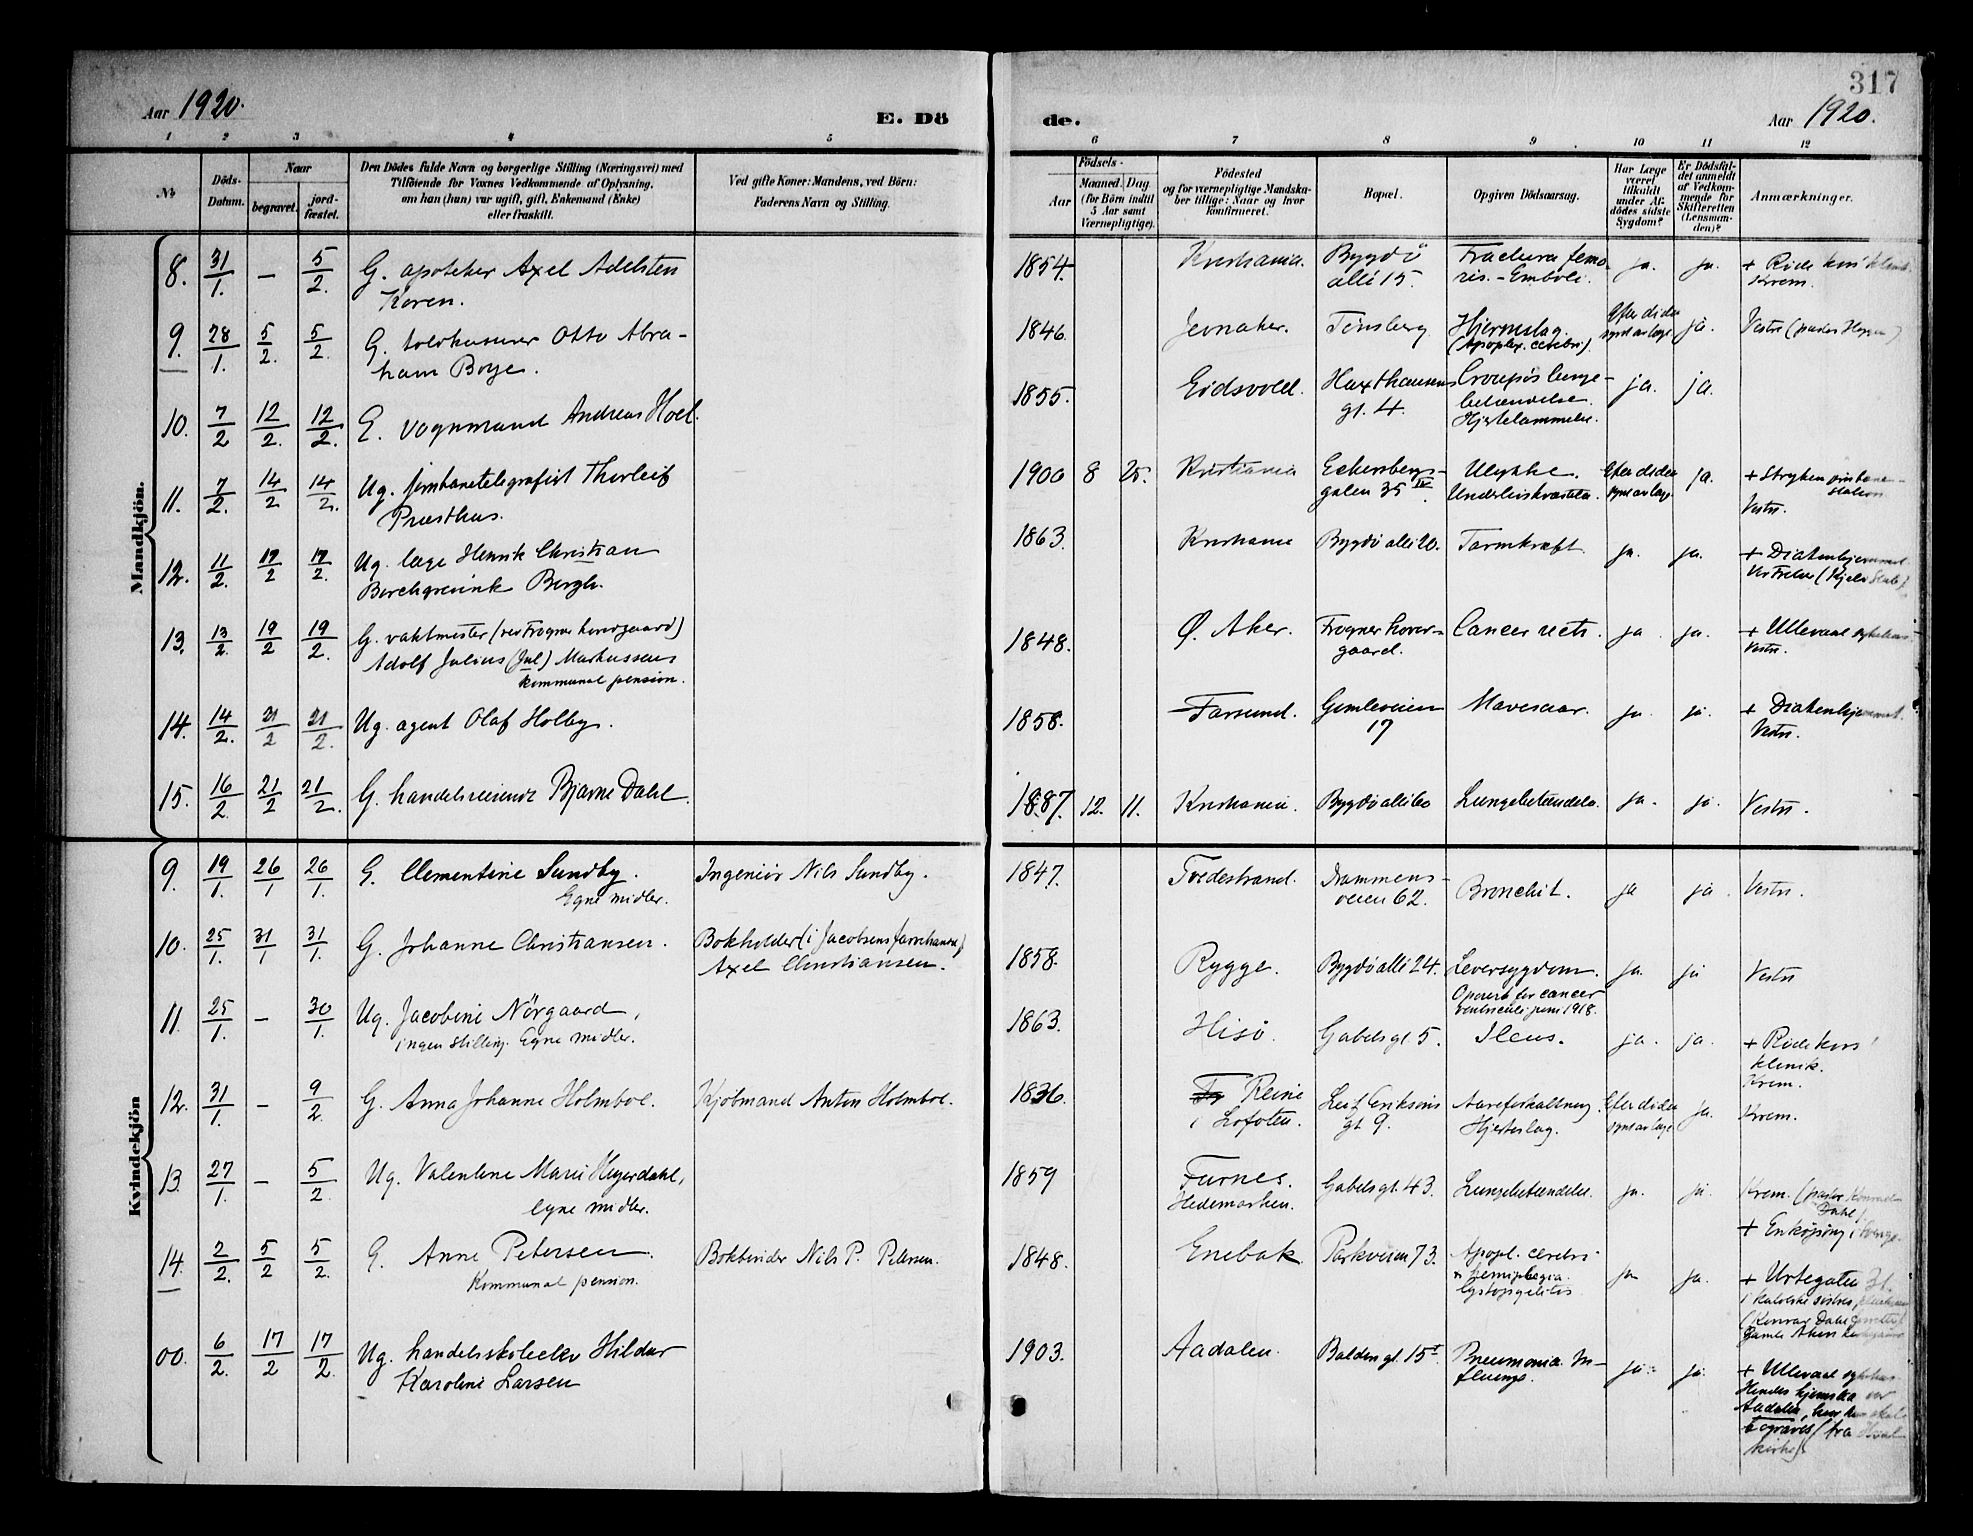 317
Aar 1920.
E. Dö
de.
Aar 1920.
1 2 3 4 5
6 7 8 9 10 11 12
№
Döds-
Datum.
Naar
begravet.
jord-
fæstet.
Den Dödes fulde Navn og borgerlige Stilling (Næringsvei) med
Tilföiende for Voxnes Vedkommende af Oplysning,
om han (hun) var ugift, gift, Enkemand (Enke)
eller fraskilt.
Ved gifte Koner: Mandens, ved Börn:
Faderens Navn og Stilling.
Födsels-
Aar
Maaned. Dag
(for Börn indtil
5 Aar samt
Værnepligtige).
Födested
og for værnepligtige Mandska-
ber tillige: Naar og hvor
konfirmeret.
Bopæl.
Opgiven Dödsaarsag.
Har Læge
været
tilkaldt
under Af-
dödes sidste
Sygdom?
Er Dödsfal-
det anmeldt
af Vedkom-
mende for
Skifteretten
(Lensman-
den)?
Anmærkninger.
Mandkjön.
8. 31/1. — 5/2. G. apoteker Axel Adelsten
Koren.
1854. Kristiania. Bygdö
allé 15. Fractura femo-
ris. - Emboli. ja. ja. + Röde kors'
Krem.
9. 28/1. 5/2. 5/2. G. toldkasserer Otto Abra-
ham Boye.
1846. Jevnaker. Tönsberg. Hjerneslag.
(Apoplex. cerebri). Efter döden
synt av læge ja. Vestre
10. 7/2 12/2. 12/2. E. vognmand Andreas Hoel.
1855. Eidsvold. Haxthausens
gt. 4. Croupøs lunge-
betændelse.
Hjertelammelse. ja. ja.
11. 7/2. 14/2 14/2. Ug. jernbanetelegrafist Thorleif
Præsthus.
1900 8 25. Kristiania Eckersbergs-
gaten 35 IV. Ulykke.
Efter döden
synt av læge ja. + Stryken jernbane-
station
Vestre.
12. 11/2. 17/2 17/2. Ug. læge Henrik Christian
Borchgrevink Bergh.
1863. Kristiania Bygdö allé 20. Tarmkræft. ja. ja. + Diakonhjemmet.
Vor Frelser
13. 13/2 19/2 19/2 G. vaktmester (ved Frogner hovedgaard)
Adolf Julius (Jul) Markussen
kommunal pension.
1848. Ø. Aker. Frogner hoved-
gaard. Cancer recti. ja. ja. + Ullevaal sykehus.
Vestre.
14. 14/2. 21/2 21/2. Ug. agent Olaf Holby.
1858. Farsund. Gimleveien
17 Mavesaar. ja. ja. + Diakonhjemmet.
Vestre.
15. 16/2. 21/2 21/2. G. handelsreisende Bjarne Dahl.
1887. 12. 11. Kristiania. Bygdö allé 60 Lungebetændelse. ja. ja. Vestre.
Kvindekjön
9. 19/1. 26/1 26/1. G. Clementine Sundby.
Egne midler.
Ingeniör Nils Sundby.
1847. Tvedestrand. Drammens-
veien 62. Bronchit. ja ja. Vestre.
10. 25/1. 31/1 31/1. G. Johanne Christiansen.
Bokholder (i Jacobsens farvehandel)
Axel Christiansen.
1858. Rygge. Bygdö allé 24. Leversygdom.
Operert for cancer
ventriculi juni 1918. ja. ja Vestre
11. 25/1. — 30/1. Ug. Jacobine Nörgaard,
ingen stilling. Egne midler.
1863. Hisö. Gabels gt. 5. Ileus. ja. ja. + Röde kors'
klinik.
Krem.
12. 31/1. — 9/2. G. Anna Johanne Holmboe.
Kjöbmand Anton Holmboe.
1836. Reine
i Lofoten. Leif Eriksons
gt 9. Aareforkalkning.
Hjerteslag. Efter döden
synt av læge ja. Krem.
13. 27/1. — 5/2. Ug. Valentine Marie Heyerdahl,
egne midler.
1859 Furnes.
Hedemarken. Gabels gt. 43. Lungebetændelse. ja. ja. Krem. (pastor Konrad
Dahl)
+ Enköping i Sverige.
14. 2/2. 5/2 5/2. G. Anne Petersen.
Kommunal pension.
Bokbinder Nils P. Petersen.
1848. Enebak. Parkveien 73. Apopl. cerebri
hemiplegia.
ja ja. + Urtegaten
00. 6/2. 17/2 17/2. Ug. handelsskoleelev Hildur
Karoline Larsen
1903. Aadalen. Baldersgt. 15 I. Pneumonia. In-
fluenza. ja. ja. + Ullevaal sykehus
Hendes hjemsted er
Aadalen, hvor hun skal
begraves